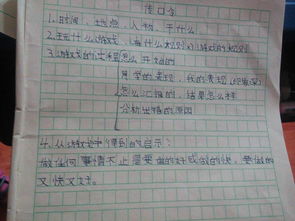 传口令
1.时间、地点、人物、干什么
2.玩什么游戏,有什么规则
3.游戏的过程是怎么开始的
同学的表现,我的表现
怎么汇报的,结果怎么样
分析出错的原因
4.从游戏中得到的启示:
做任何事情不止是要做的好或做的快,要做的
又快又好。